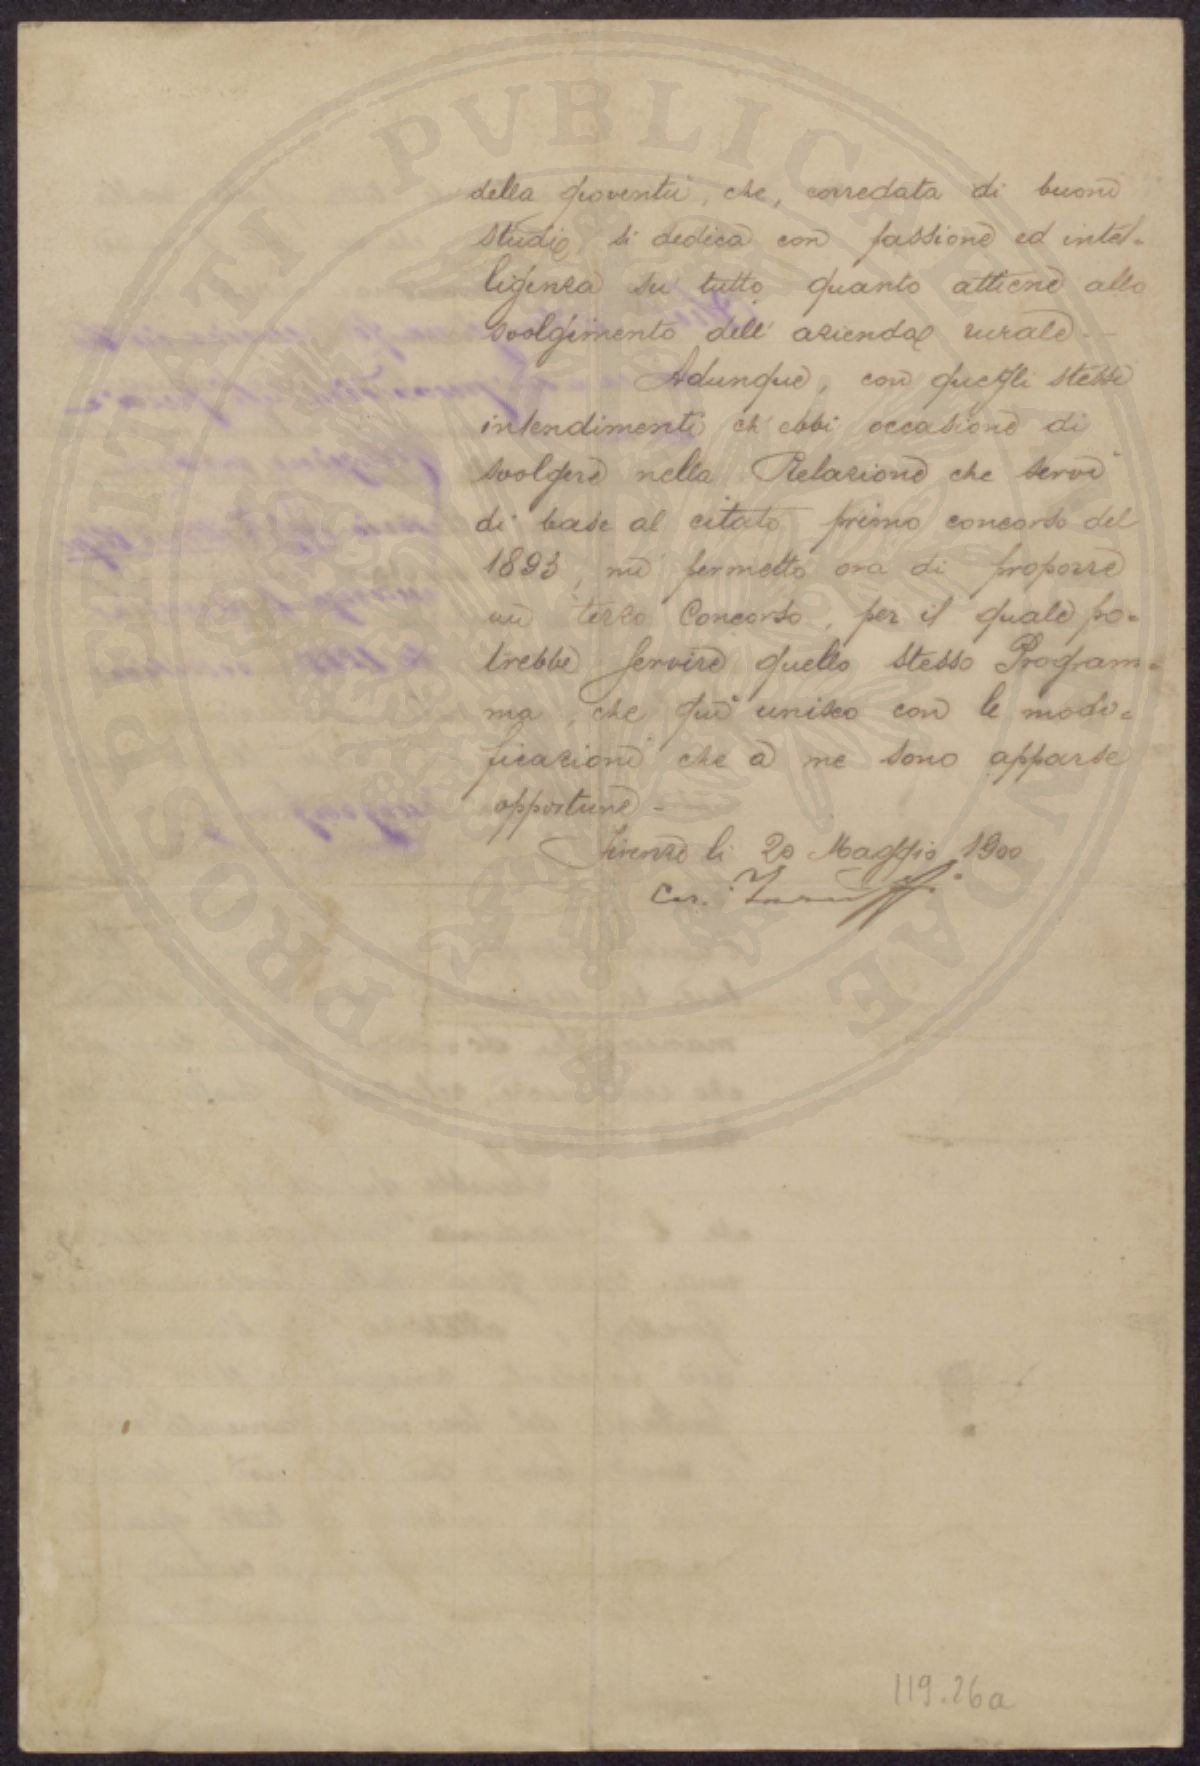 PROSPERITATI PVBLICAE AVGENDAE
della gioventù, che, corredata di buoni
studi, si dedica con passione ed intel-
ligenza su tutto quanto attiene allo
svolgimento dell' azienda rurale.—
Adunque, con quegli stessi
intendimenti ch' ebbi occasione di
svolgere nella Relazione che servì
di base al citato primo concorso del
1893, mi permetto ora di proporre
un terzo Concorso, per il quale po-
trebbe servire quello stesso Program-
ma, che quì unisco con le modi-
ficazioni che a me sono apparse
opportune —
Firenze li 20 Maggio 1900
119.26a